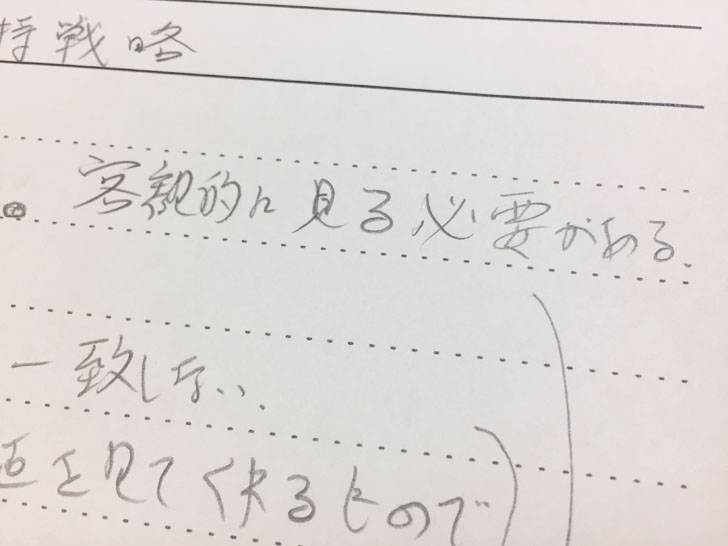 持戦略
客観的に見る必要がある.
一致しない.
直を見てくれるもので